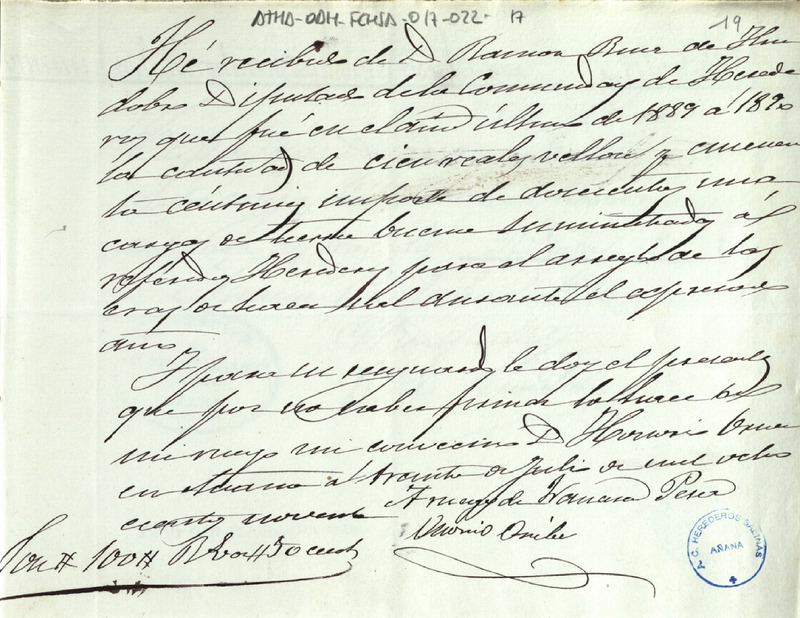 ATHA-DAH-FCHSA-017-022- 17
19
Hé recibido de D Ramon Ruiz de
Diputado de la Comunidad de Herede
ros que fué en el año último de 1889 a 1890
la cantidad de cien reales vellon y cincuen
ta céntimos importe de doscientas una
cargas de tierra buena suministrada á
referidos Herederos para el arreglo de las
eras de hacer sal durante el expresado
año
Y para su resguardo le doy el presente
que por no saber firmar lo hace á
mi ruego mi convecino D Honorio Uribe
en Añana á treinta de Julio de mil ocho
cientos noventa
A ruego de Francisca Perea
Honorio Uribe
Son # 100 # R Von # 50 cents
A. C. HEREDEROS SALINAS
AÑANA